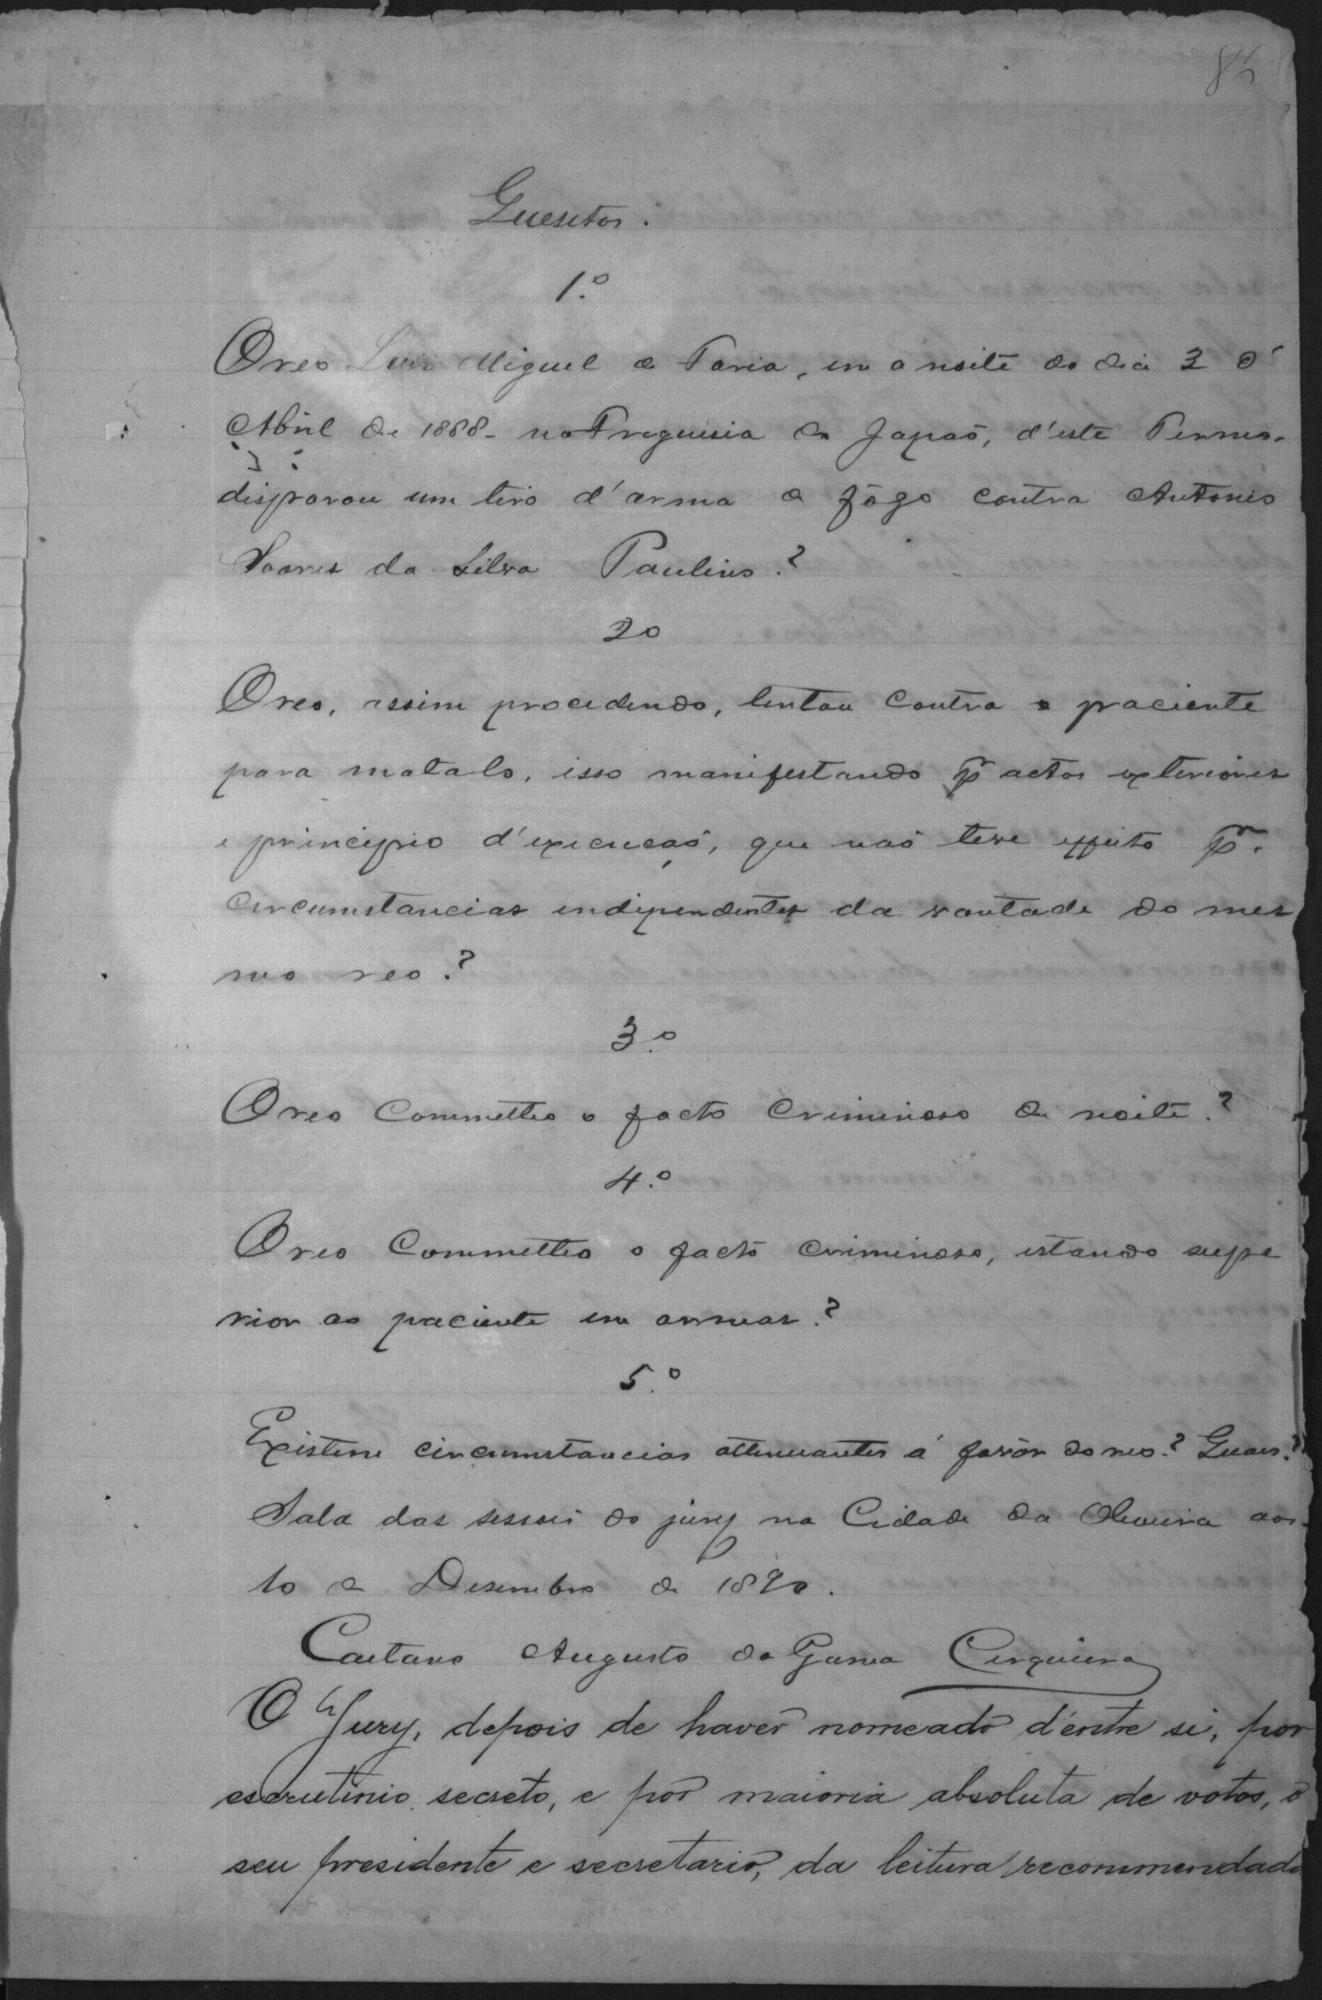 86
Quesitos.
1.º
O reo Luis Miguel de Faria, em a noite do dia 3 d'
Abril de 1888 - na Freguisia do Japaõ, d'este Termo,
disparou um tiro d'arma de fôgo contra Antonio
Soares da Silva Paulino?
2o
O reo, assim procedendo, tentou contra o paciente
para matalo, isso manifestando pr actos exteriores
e principio d'execuçaõ, que naõ teve effeito pr.
circumstancias independentes da vontade do mes
mo reo?
3.º
O reo Commetteo o facto criminoso de noite?
4.º
O reo Commetteo o facto criminoso, estando supe
rior ao paciente em armas?
5.º
Existem circumstancias attenuantes á favôr do reo? Quaes?
Sala das sessoes do jury na Cidade da Oliveira aos
10 de Desembro de 1890.
Caetano Augusto da Gama Cerqueira
O Jury, depois de haver nomeado d'entre si, por
escrutinio secreto, e por maioria absoluta de votos, o
seu presidente e secretario, da leitura recommendada